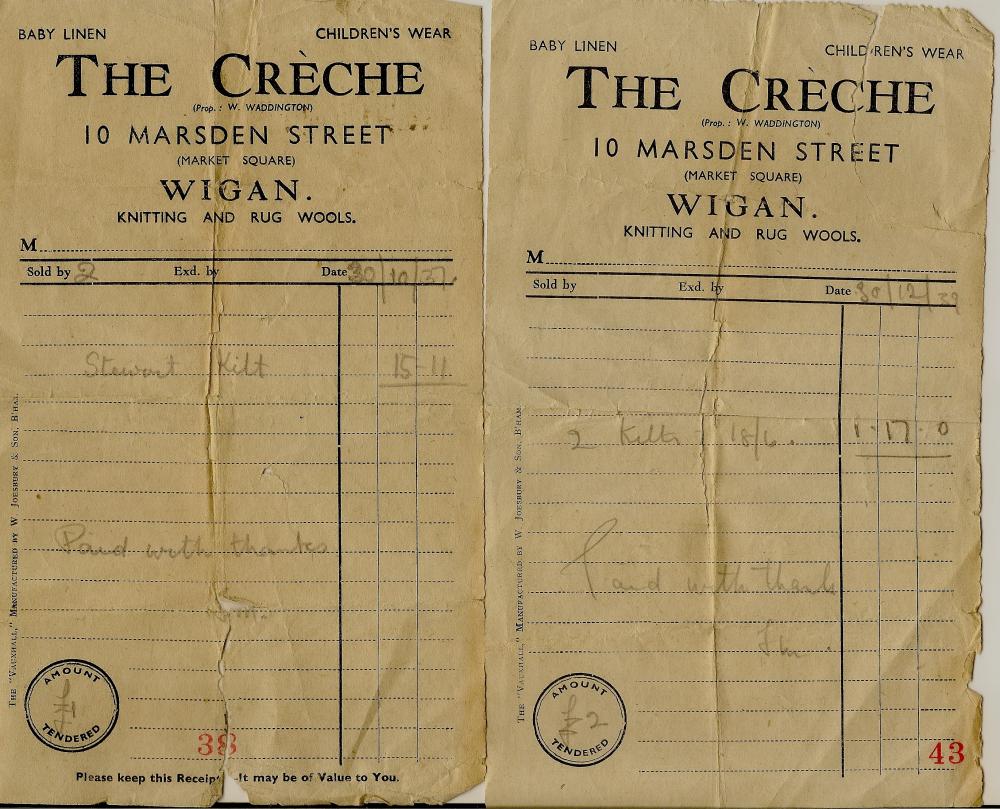 BABY LINEN CHILDREN'S WEAR
THE CRÈCHE
(Prop.: W. WADDINGTON)
10 MARSDEN STREET
(MARKET SQUARE)
WIGAN.
KNITTING AND RUG WOOLS.
M
Sold by 2 Exd. by Date 30/10/37.
Stewart Kilt 15-11
Paid with thanks
THE "VAUXHALL," MANUFACTURED BY W JOESBURY & SON, B'HAM.
AMOUNT
£1
TENDERED
38
Please keep this Receipt -It may be of Value to You.
BABY LINEN CHILDREN'S WEAR
THE CRÈCHE
(Prop.: W. WADDINGTON)
10 MARSDEN STREET
(MARKET SQUARE)
WIGAN.
KNITTING AND RUG WOOLS.
M
Sold by Exd. by Date 30/12/39
2 Kilts - 18/6. 1-17-0
Paid with thanks
THE "VAUXHALL," MANUFACTURED BY W. JOESBURY & SON, B'HAM.
AMOUNT
£2
TENDERED
43